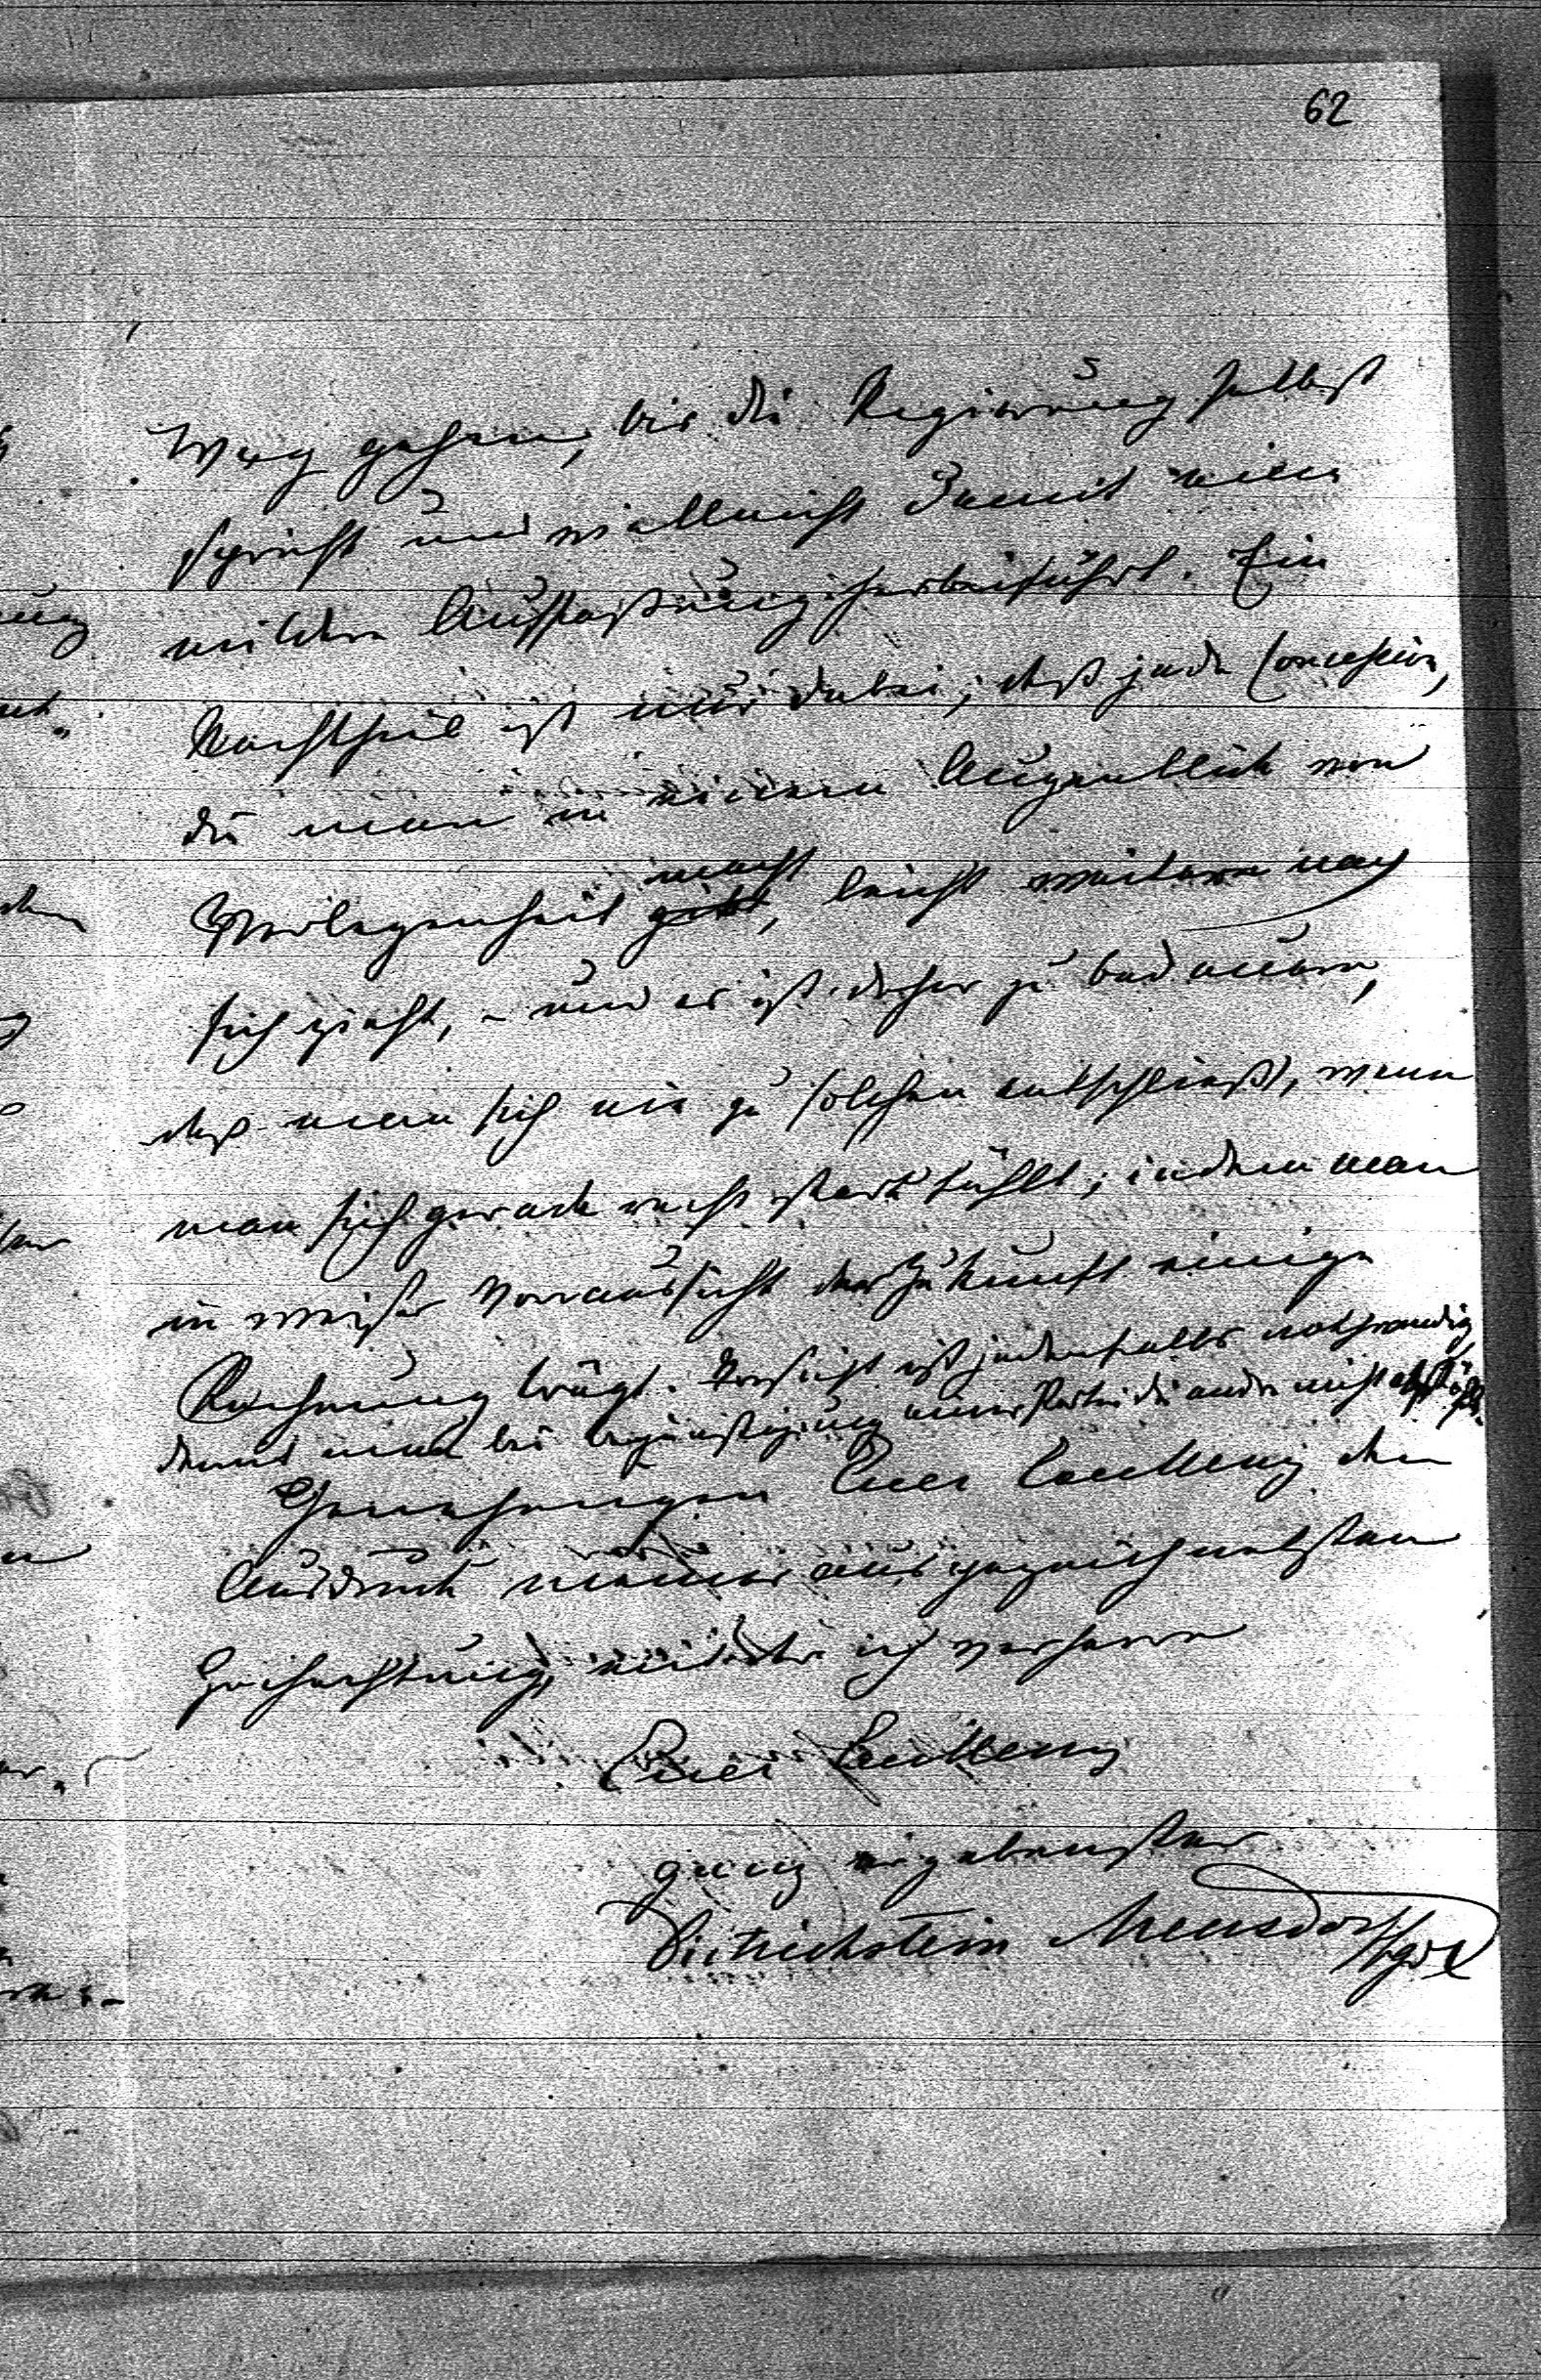 62
Weg gehen, bis die Regierung selbst
spricht und vielleicht damit eine
mildere Auffaßung herbeiführt. Ein
Nachtheil ist nur dabei, daß jede Concession,
die man in einem Augenblick von
Verlegenheit macht, leicht weitere nach
sich zieht, – und es ist daher zu bedauern,
daß man sich nie zu solchen entschließt, wenn
man sich gerade recht stark fühlt, indem man
in weiser Vorraussicht der Zukunft einige
Rechnung trägt. Vorsicht ist jedenfalls nothwendig
damit man bei Begünstigung einer Partei die andre nicht abstößt.
Genehmigen Euer Excellenz den
Ausdruck meiner ausgezeichnetsten
Hochachtung, mit der ich verharre
Euer Excellenz
ganz ergebenster
Dietrichstein Mensdorff